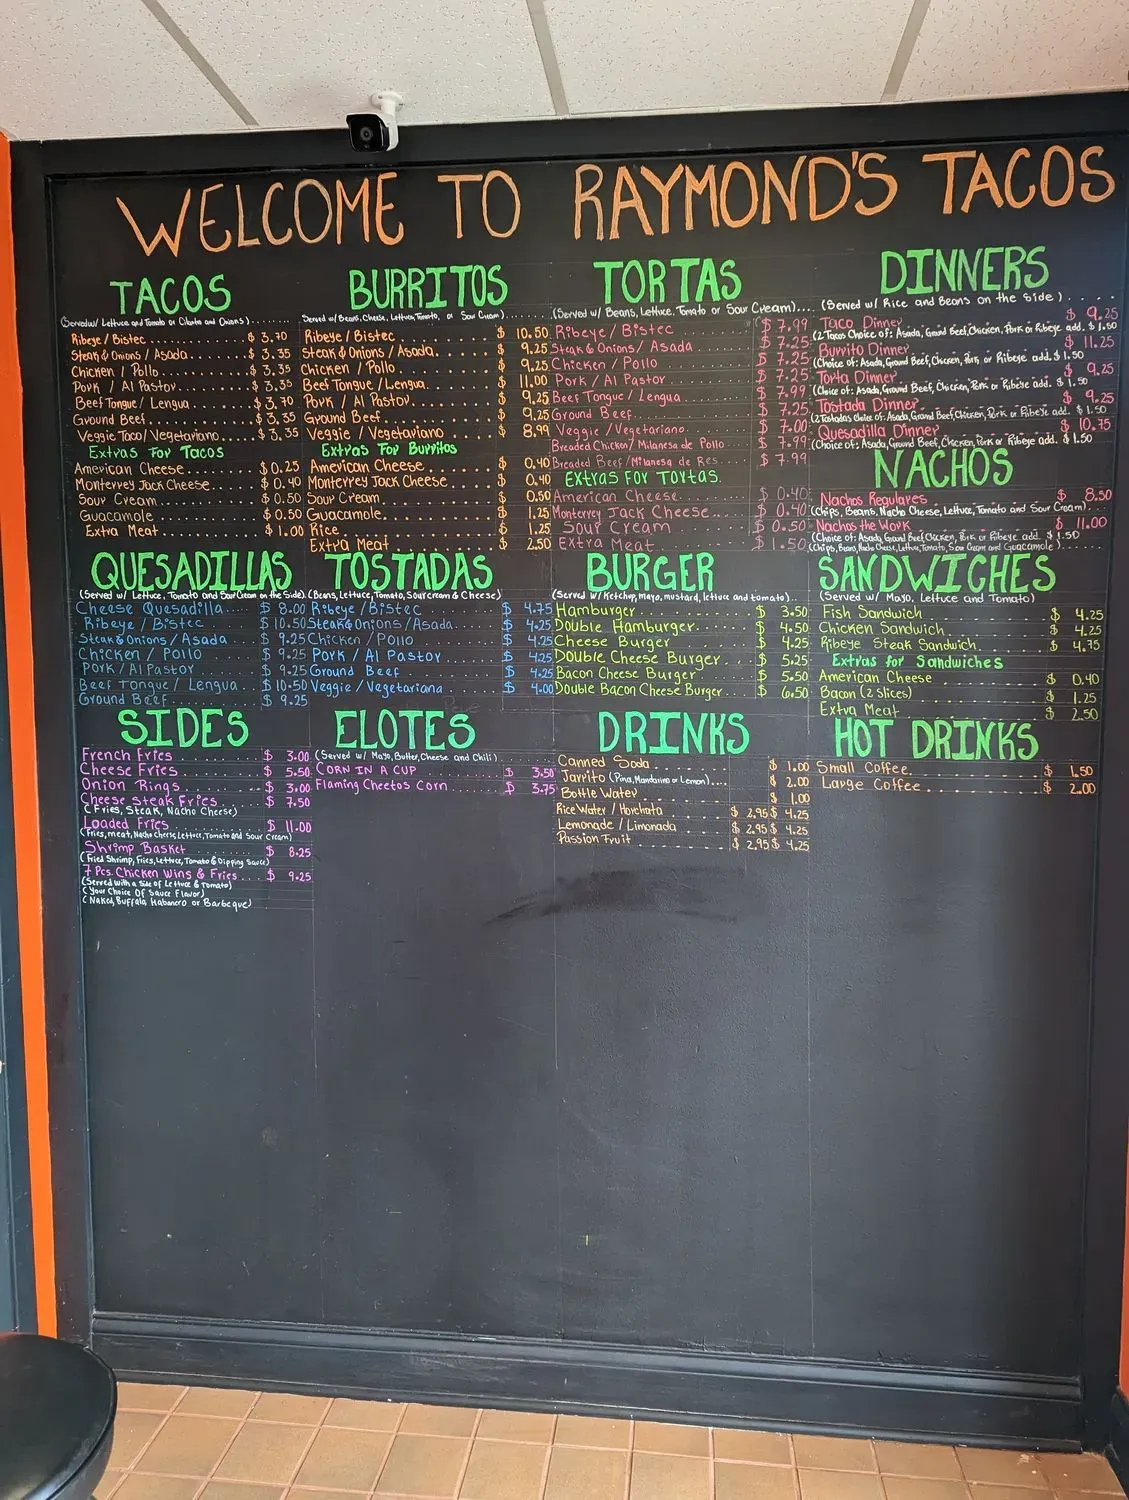 WELCOME TO RAYMOND'S TACOS
TACOS
(Served w/ Lettuce and Tomato or Cilantro and Onions)
Ribeye / Bistec $ 3.70
Steak & Onions / Asada $ 3.35
Chicken / Pollo $ 3.35
Pork / Al Pastor $ 3.35
Beef Tongue / Lengua $ 3.70
Ground Beef $ 3.35
Veggie Taco / Vegetariano $ 3.35
Extras For Tacos
American Cheese $ 0.25
Monterrey Jack Cheese $ 0.40
Sour Cream $ 0.50
Guacamole $ 0.50
Extra Meat $ 1.00
BURRITOS
Served w/ Beans, Cheese, Lettuce, Tomato, or Sour Cream)
Ribeye / Bistec $ 10.50
Steak & Onions / Asada $ 9.25
Chicken / Pollo $ 9.25
Beef Tongue / Lengua $ 11.00
Pork / Al Pastor $ 9.25
Ground Beef $ 9.25
Veggie / Vegetariano $ 8.99
Extras For Burritos
American Cheese $ 0.40
Monterrey Jack Cheese $ 0.40
Sour Cream $ 0.50
Guacamole $ 1.25
Rice $ 1.25
Extra Meat $ 2.50
TORTAS
(Served w/ Beans, Lettuce, Tomato or Sour Cream)
Ribeye / Bistec $ 7.99
Steak & Onions / Asada $ 7.25
Chicken / Pollo $ 7.25
Pork / Al Pastor $ 7.25
Beef Tongue / Lengua $ 7.99
Ground Beef $ 7.25
Veggie / Vegetariano $ 7.00
Breaded Chicken / Milanesa de Pollo $ 7.99
Breaded Beef / Milanesa de Res $ 7.99
Extras For Tortas
American Cheese $ 0.40
Monterrey Jack Cheese $ 0.40
Sour Cream $ 0.50
Extra Meat $ 1.50
DINNERS
(Served w/ Rice and Beans on the Side)
Taco Dinner $ 9.25
(2 Tacos Choice of: Asada, Ground Beef, Chicken, Pork or Ribeye add. $ 1.50
Burrito Dinner $ 11.25
(Choice of: Asada, Ground Beef, Chicken, Pork or Ribeye add. $ 1.50
Torta Dinner $ 9.25
(Choice of: Asada, Ground Beef, Chicken, Pork or Ribeye add. $ 1.50
Tostada Dinner $ 9.25
(2 Tostadas choice of: Asada, Ground Beef, Chicken, Pork or Ribeye add. $ 1.50
Quesadilla Dinner $ 10.75
(Choice of: Asada, Ground Beef, Chicken, Pork or Ribeye add. $ 1.50
NACHOS
Nachos Regulares $ 8.50
(Chips, Beans, Nacho Cheese, Lettuce, Tomato and Sour Cream)
Nachos the Work $ 11.00
(Choice of: Asada, Ground Beef, Chicken, Pork or Ribeye add. $1.50
(Chips, Beans, Nacho Cheese, Lettuce, Tomato, Sour Cream and Guacamole)
QUESADILLAS
(Served w/ Lettuce, Tomato and Sour Cream on the Side)
Cheese Quesadilla $ 8.00
Ribeye / Bistec $ 10.50
Steak & Onions / Asada $ 9.25
Chicken / Pollo $ 9.25
Pork / Al Pastor $ 9.25
Beef Tongue / Lengua $ 10.50
Ground Beef $ 9.25
TOSTADAS
(Beans, Lettuce, Tomato, Sour Cream & Cheese)
Ribeye / Bistec $ 4.75
Steak & Onions / Asada $ 4.25
Chicken / Pollo $ 4.25
Pork / Al Pastor $ 4.25
Ground Beef $ 4.25
Veggie / Vegetariana $ 4.00
BURGER
(Served w/ Ketchup, mayo, mustard, lettuce and tomato)
Hamburger $ 3.50
Double Hamburger $ 4.50
Cheese Burger $ 4.25
Double Cheese Burger $ 5.25
Bacon Cheese Burger $ 5.50
Double Bacon Cheese Burger $ 6.50
SANDWICHES
(Served w/ Mayo, Lettuce and Tomato)
Fish Sandwich $ 4.25
Chicken Sandwich $ 4.25
Ribeye Steak Sandwich $ 4.75
Extras for Sandwiches
American Cheese $ 0.40
Bacon (2 Slices) $ 1.25
Extra Meat $ 2.50
SIDES
French Fries $ 3.00
Cheese Fries $ 5.50
Onion Rings $ 3.00
Cheese Steak Fries $ 7.50
(Fries, Steak, Nacho Cheese)
Loaded Fries $ 11.00
(Fries, meat, Nacho Cheese, Lettuce, Tomato and Sour Cream)
Shrimp Basket $ 8.25
(Fried Shrimp, Fries, Lettuce, Tomato & Dipping Sauce)
7 Pcs. Chicken Wins & Fries $ 9.25
(Served with a Side of Lettuce & Tomato)
(Your Choice Of Sauce Flavor)
(Naked, Buffalo, Habanero or Barbeque)
ELOTES
(Served w/ Mayo, Butter, Cheese and Chili)
CORN IN A CUP $ 3.50
Flaming Cheetos Corn $ 3.75
DRINKS
Canned Soda $ 1.00
Jarrito (Pina, Mandarina or Lemon) $ 2.00
Bottle Water $ 1.00
Rice Water / Horchata $ 2.95 $ 4.25
Lemonade / Limonada $ 2.95 $ 4.25
Passion Fruit $ 2.95 $ 4.25
HOT DRINKS
Small Coffee $ 1.50
Large Coffee $ 2.00